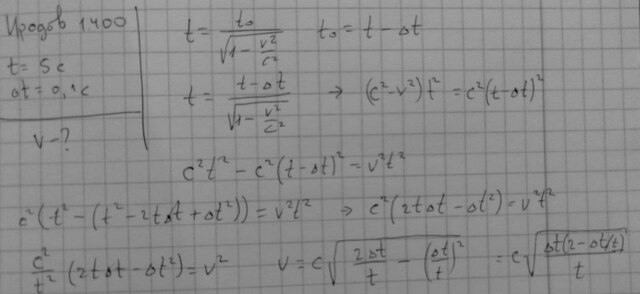 Иродов 1.400
t = 5c
Δt = 0,1c
v - ?
t = t₀ / √(1 - v²/c²)    t₀ = t - Δt
t = (t - Δt) / √(1 - v²/c²) → (c² - v²) t² = c² (t - Δt)²
c²t² - c² (t - Δt)² = v²t²
c² (t² - (t² - 2tΔt + Δt²)) = v²t² → c² (2tΔt - Δt²) = v²t²
c²/t² (2tΔt - Δt²) = v²    v = c √(2Δt/t - (Δt/t)²) = c √(Δt(2 - Δt/t)/t)